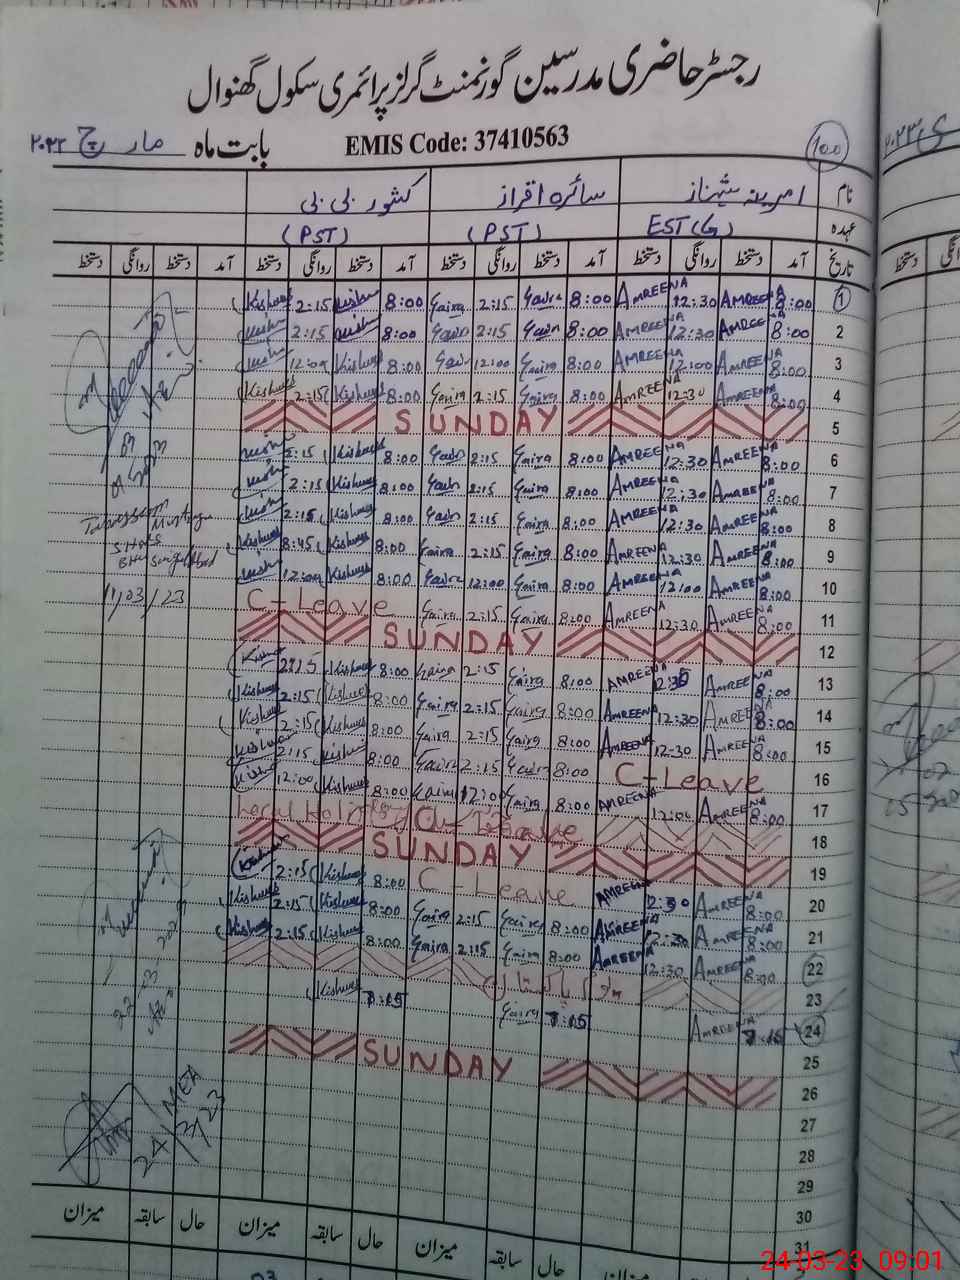 رجسٹر حاضری مدرسین گورنمنٹ گرلز پرائمری سکول گھنوال
بابت ماہ مارچ ۲۰۲۳ EMIS Code: 37410563 100
نام امرینہ شہناز سائرہ اقراز کشور بی بی
عہدہ EST (G) (PST) (PST)
تاریخ آمد دستخط روانگی دستخط آمد دستخط روانگی دستخط آمد دستخط روانگی دستخط آمد دستخط روانگی دستخط
1 8:00 AMREENA 12:30 AMREENA 8:00 Saira 2:15 Saira 8:00 Kishwar 2:15 Kishwar
2 8:00 AMREENA 12:30 AMREENA 8:00 Saira 2:15 Saira 8:00 Kishwar 2:15 Kishwar
3 8:00 AMREENA 12:00 AMREENA 8:00 Saira 12:00 Saira 8:00 Kishwar 12:00 Kishwar
4 8:00 AMREENA 12:30 AMREENA 8:00 Saira 2:15 Saira 8:00 Kishwar 2:15 Kishwar
5 SUNDAY
6 8:00 AMREENA 12:30 AMREENA 8:00 Saira 2:15 Saira 8:00 Kishwar 2:15 Kishwar
7 8:00 AMREENA 12:30 AMREENA 8:00 Saira 2:15 Saira 8:00 Kishwar 2:15 Kishwar
8 8:00 AMREENA 12:30 AMREENA 8:00 Saira 2:15 Saira 8:00 Kishwar 2:15 Kishwar
9 8:00 AMREENA 12:30 AMREENA 8:00 Saira 2:15 Saira 8:00 Kishwar 8:45 Kishwar
10 8:00 AMREENA 12:00 AMREENA 8:00 Saira 12:00 Saira 8:00 Kishwar 12:00 Kishwar
11 8:00 AMREENA 12:30 AMREENA 8:00 Saira 2:15 Saira C-Leave 11/03/23
12 SUNDAY
13 8:00 AMREENA 12:30 AMREENA 8:00 Saira 2:15 Saira 8:00 Kishwar 2:15 Kishwar
14 8:00 AMREENA 12:30 AMREENA 8:00 Saira 2:15 Saira 8:00 Kishwar 2:15 Kishwar
15 8:00 AMREENA 12:30 AMREENA 8:00 Saira 2:15 Saira 8:00 Kishwar 2:15 Kishwar
16 C-Leave 8:00 Saira 2:15 Saira 8:00 Kishwar 2:15 Kishwar
17 8:00 AMREENA 12:00 AMREENA 8:00 Saira 12:00 Saira 8:00 Kishwar 12:00 Kishwar
18 Local Holiday
19 SUNDAY
20 8:00 AMREENA 12:30 AMREENA C-Leave 8:00 Kishwar 2:15 Kishwar
21 8:00 AMREENA 12:30 AMREENA 8:00 Saira 2:15 Saira 8:00 Kishwar 2:15 Kishwar
22 8:00 AMREENA 12:30 AMREENA 8:00 Saira 2:15 Saira 8:00 Kishwar 2:15 Kishwar
23 پاکستان
24 7:15 AMREENA 7:15 Saira 7:15 Kishwar
25
26 SUNDAY
27
28 MEA
29 24/3/23
30
31
حال سابقہ میزان حال سابقہ میزان حال سابقہ میزان
24-03-23 09:01